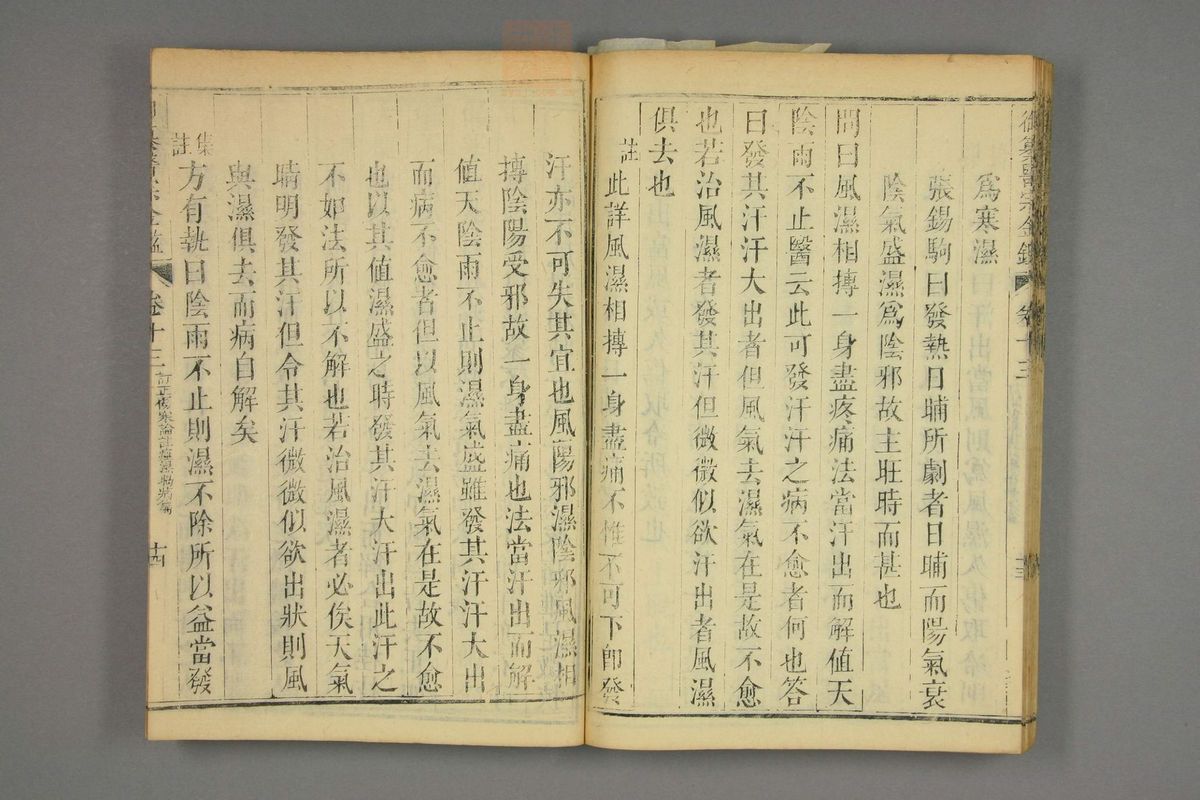 御纂醫宗金鑑 卷十三 十三
爲寒濕
張錫駒曰發熱日晡所劇者日晡而陽氣衰
陰氣盛濕爲陰邪故主旺時而甚也
問曰風濕相摶一身盡疼痛法當汗出而解值天
陰雨不止醫云此可發汗汗之病不愈者何也答
曰發其汗汗大出者但風氣去濕氣在是故不愈
也若治風濕者發其汗但微微似欲汗出者風濕
俱去也
註此詳風濕相摶一身盡痛不惟不可下卽發
汗亦不可失其宜也風陽邪濕陰邪風濕相
摶陰陽受邪故一身盡痛也法當汗出而解
值天陰雨不止則濕氣盛雖發其汗汗大出
而病不愈者但以風氣去濕氣在是故不愈
也以其值濕盛之時發其汗大汗出此汗之
不如法所以不解也若治風濕者必俟天氣
晴明發其汗但令其汗微微似欲出狀則風
與濕俱去而病自解矣
集註方有執曰陰雨不止則濕不除所以益當發
卷十三 訂正傷寒論註痙濕暍病篇 十四